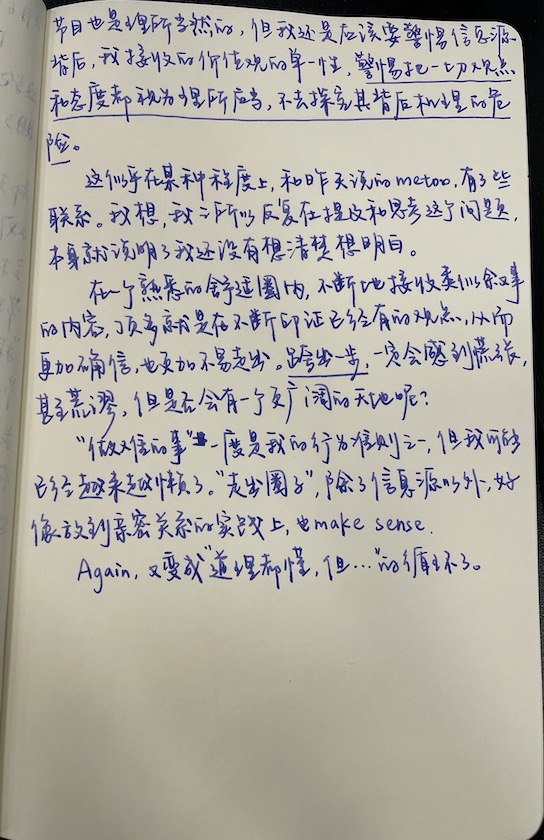 节目也是理所当然的，但我还是应该要警惕信息源
背后，我接收的价值观的单一性，警惕把一切观点
和态度都视为理所应当，不去探究其背后机理的危
险。
这似乎在某种程度上，和昨天说的metoo，有了些
联系。我想，我之所以反复在提及和思考这个问题，
本身就说明了我还没有想清楚想明白。
在一个熟悉的舒适圈内，不断地接收类似叙事
的内容，顶多就是在不断印证已经有的观点，从而
更加确信，也更加不易走出。跨出一步，一定会感到慌张，
甚至荒谬，但是否会有一个更广阔的天地呢？
“做难的事”一度是我的行为准则之一，但我可能
已经越来越懒了。“走出圈子”，除了信息源以外，好
像放到亲密关系的实践上，也make sense.
Again，又变成“道理都懂，但…”的循环了。